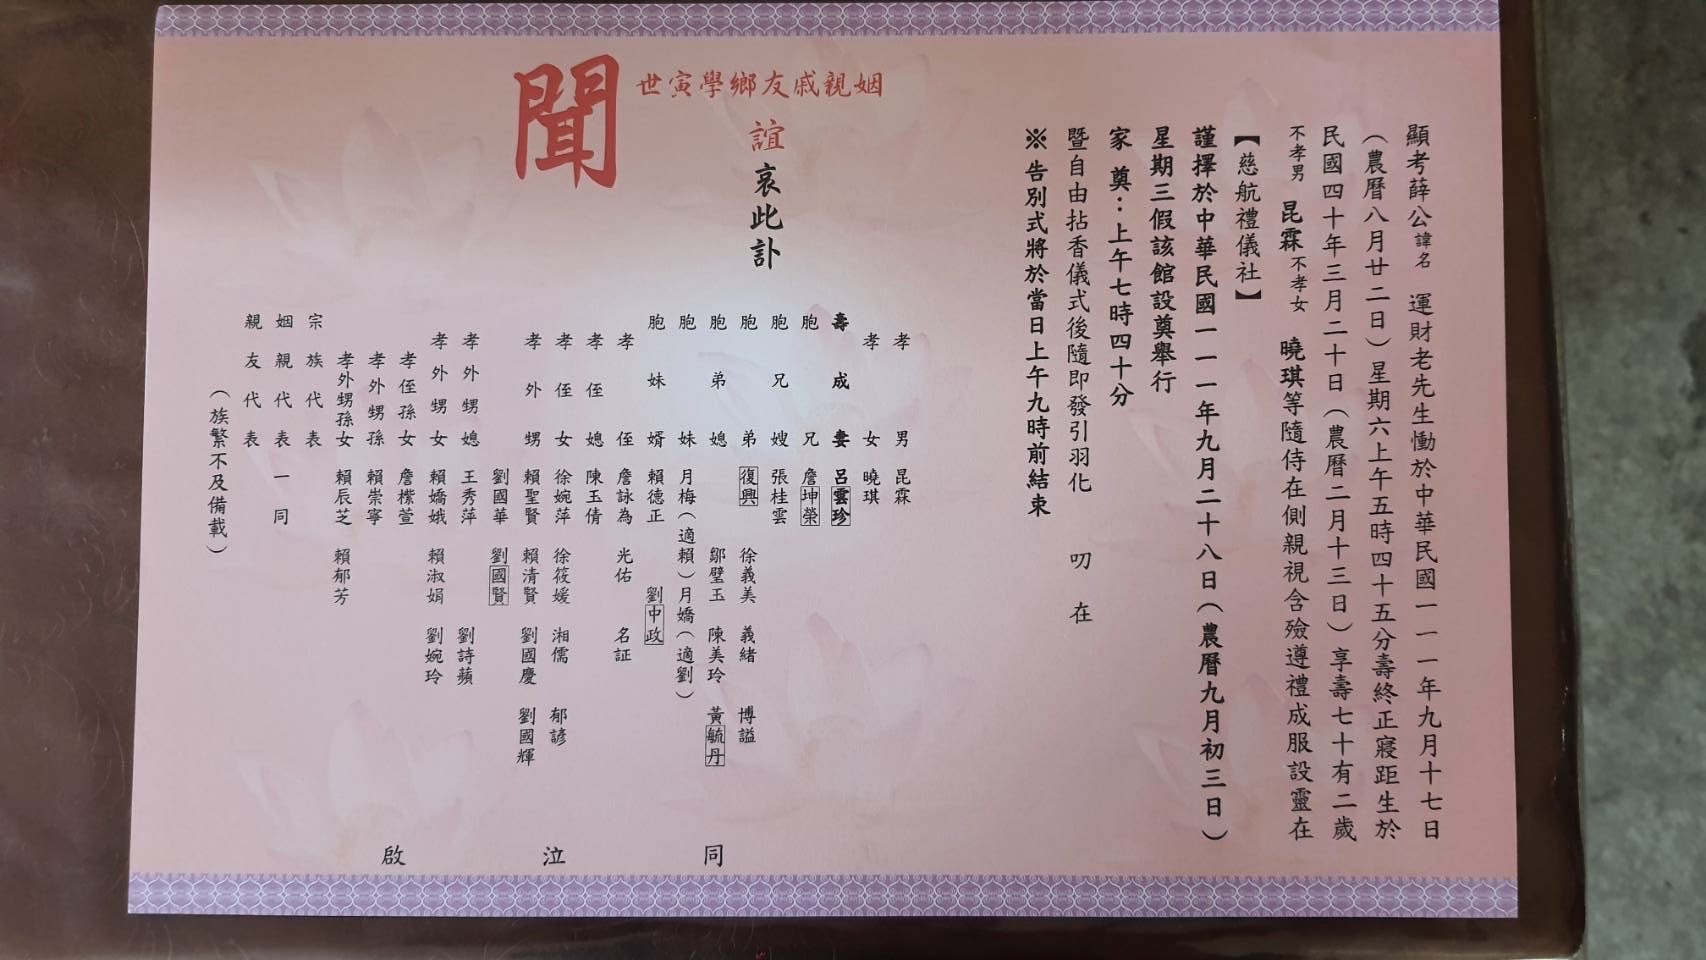 顯考薛公諱名 運財老先生慟於中華民國一一一年九月十七日
（農曆八月廿二日）星期六上午五時四十五分壽終正寢距生於
民國四十年三月二十日（農曆二月十三日）享壽七十有二歲
不孝男 昆霖 不孝女 曉琪等隨侍在側親視含殮遵禮成服設靈在
【慈航禮儀社】
謹擇於中華民國一一一年九月二十八日（農曆九月初三日）
星期三假該館設奠舉行
家 奠：上午七時四十分
暨自由拈香儀式後隨即發引羽化 叨 在
※告別式將於當日上午九時前結束
姻親戚友鄉學寅世
誼哀此訃
聞
孝男 昆霖
孝女 曉琪
壽成妻 呂雲珍
胞兄 詹坤榮
胞兄嫂 張桂雲
胞弟 復興 徐義美 義緒 博謚
胞弟媳 鄒璧玉 陳美玲 黃毓丹
胞妹 月梅（適賴）月嬌（適劉）
胞妹婿 賴德正 劉中政
孝侄 詹詠為 光佑 名証
孝侄媳 陳玉倩
孝侄女 徐婉萍 徐筱媛 湘儒 郁諺
孝外甥 賴聖賢 賴清賢 劉國慶 劉國輝
劉國華 劉國賢
孝外甥媳 王秀萍 劉詩蘋
孝外甥女 賴嬌娥 賴淑娟 劉婉玲
孝侄孫女 詹檏萱
孝外甥孫 賴崇寧
孝外甥孫女 賴辰芝 賴郁芳
宗族代表
姻親代表一同
親友代表
（族繁不及備載）
同泣啟